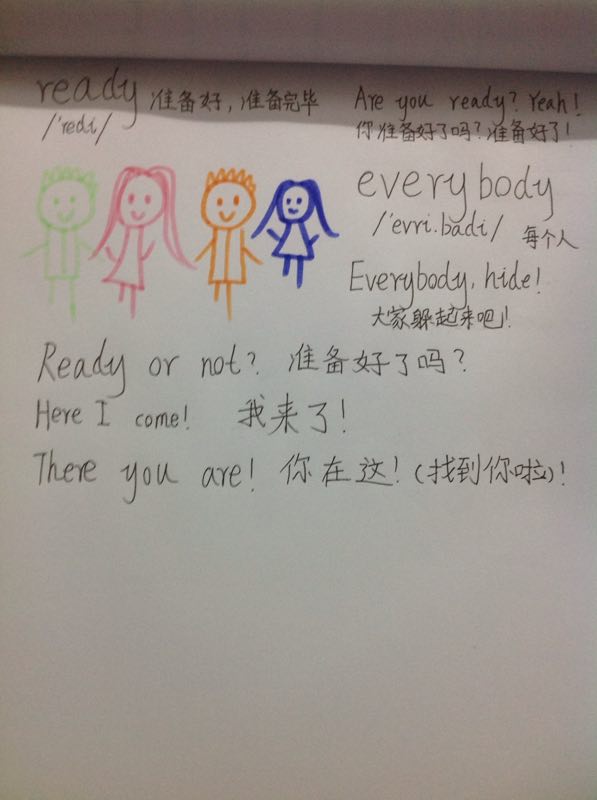 ready 准备好，准备完毕
/'redi/
Are you ready? Yeah!
你准备好了吗？准备好了！
everybody
/'evri.bɑdi/ 每个人
Everybody, hide!
大家躲起来吧！
Ready or not? 准备好了吗？
Here I come! 我来了！
There you are! 你在这！(找到你啦)！